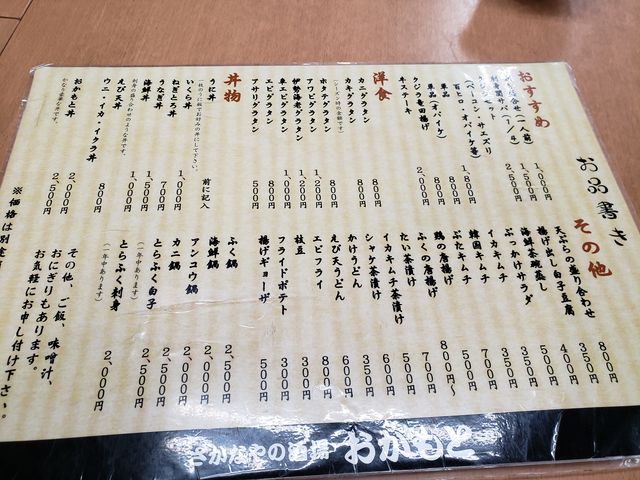 お品書き
おすすめ
盛り合せ(一人前) 1,000円
刺身 1,500円
2,500円
(ベーコン・サエズリ
百ヒロ・オバイケ等) 1,800円
単品(オバイケ) 800円
単品
クジラ竜田揚げ
牛ステーキ 2,000円
洋食
カニグラタン 800円
カキグラタン 800円
(シーズン時の金額です)
ホタテグラタン 800円
アワビグラタン 1,200円
伊勢海老グラタン 1,200円
車エビグラタン 1,000円
エビグラタン 800円
アサリグラタン 500円
丼物
うに丼 前に記入
いくら丼 1,000円
ねぎとろ丼 700円
うなぎ丼 1,500円
海鮮丼 1,000円
刺身の盛り合わせのような丼です。
えび天丼 800円
ウニ・イカ・イクラ丼 2,500円
おかもと丼 2,000円
かなり豪華な丼です。
その他
天ぷらの盛り合わせ 800円
揚げ出し白子豆腐 350円
海鮮茶碗蒸し 400円
ぶっかけサラダ 500円
イカキムチ 350円
韓国キムチ 350円
ぶたキムチ 700円
鶏の唐揚げ 500円
ふくの唐揚げ 800円~
たい茶漬け 700円
イカキムチ茶漬け 500円
シャケ茶漬け 350円
かけうどん 350円
えび天うどん 600円
エビフライ 800円
枝豆 300円
フライドポテト 300円
揚げギョーザ 500円
ふく鍋 2,500円
海鮮鍋 2,000円
アンコウ鍋 2,000円
カニ鍋 2,500円
とらふく白子 2,500円
(一年中あります)
とらふく刺身 2,000円
(一年中あります)
その他、ご飯、味噌汁、
おにぎりもあります。
お気軽にお申し付け下さい。
※価格は別
さかなやの酒場 おかもと